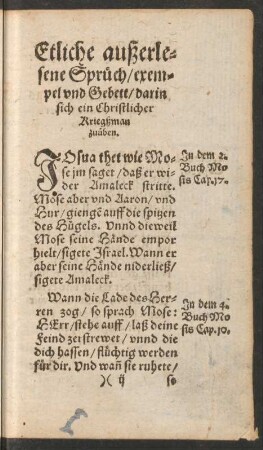 Etliche außerle-
sene Sprüch/exem-
pel vnd Gebett/darin
sich ein Christlicher
Kriegßman
zuüben.
JOsua thet wie Mo-
se jm saget/daß er wi-
der Amaleck stritte.
Mose aber vnd Aaron/vnd
Hur/giengē auff die spitzen
des Hügels. Vnnd dieweil
Mose seine Hände empor
hielt/sigete Israel. Wann er
aber seine Hände niderließ/
sigete Amaleck.
In dem 2.
Buch Mo-
sis Cap.17.
Wann die Lade des Her-
ren zog/so sprach Mose:
HErr/stehe auff/laß deine
Feind zerstrewet/vnnd die
dich hassen/flüchtig werden
für dir. Vnd wañ sie ruhete/
In dem 4.
Buch Mo-
sis Cap.10.
)( ij so